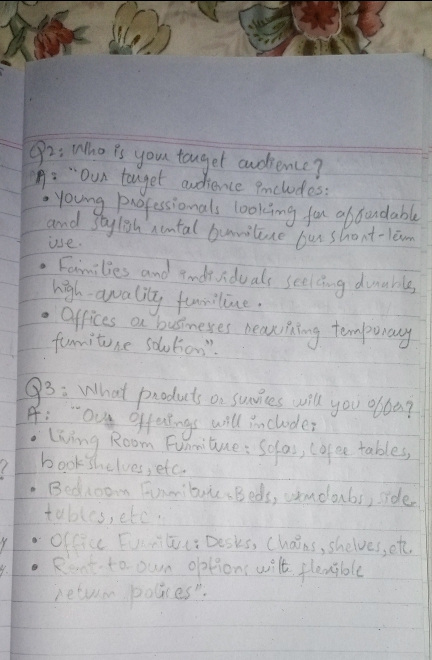 Q2: Who is your target audience?
A: "Our target audience includes:
• Young professionals looking for affordable
and stylish rental furniture for short-term
use.
• Families and individuals seeking durable,
high-quality furniture.
• Offices or businesses requiring temporary
furniture solution".
Q3: What products or survices will you offer?
A: "Our offerings will include:
• Living Room Furniture: Sofas, Cofee tables,
bookshelves, etc.
?
• Bedroom Furniture: Beds, side
tables, etc.
• Office Furniture: Desks, Chairs, shelves, etc.
y
• Rent-to own options with flexible
y.
return polices".